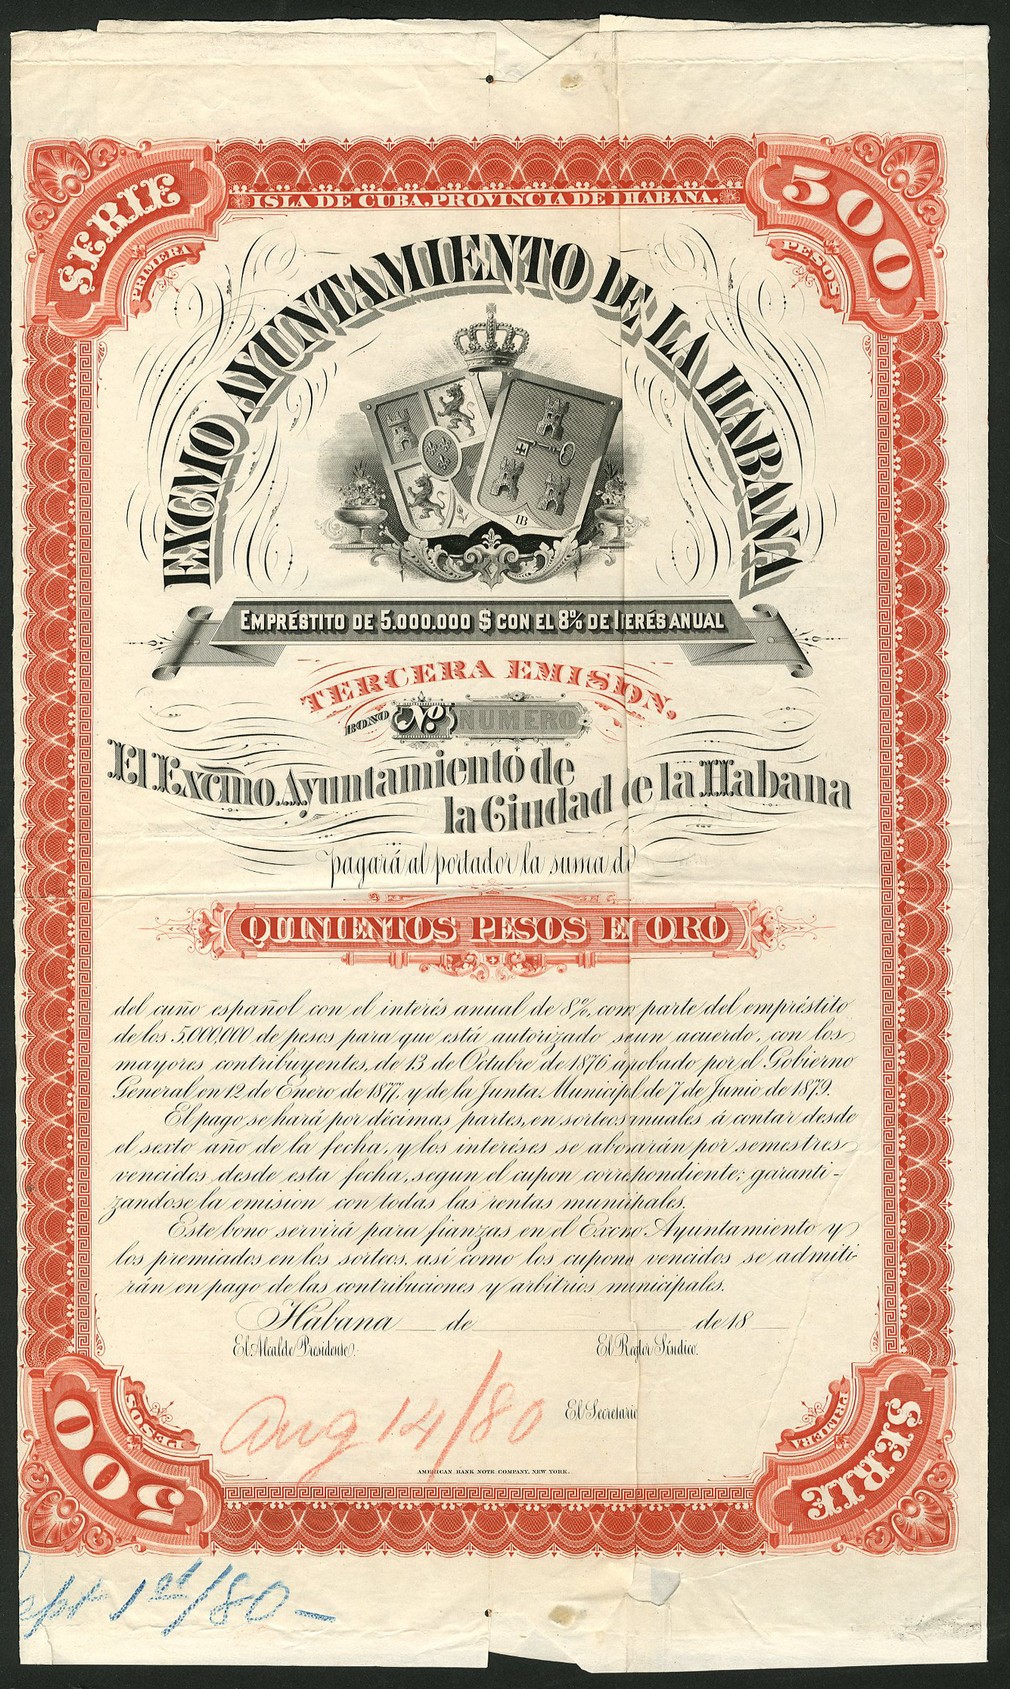 SERIE
PRIMERA
ISLA DE CUBA, PROVINCIA DE HABANA.
500
PESOS
EXCMO AYUNTAMIENTO DE LA HABANA
HB
EMPRÉSTITO DE 5.000.000 $ CON EL 8% DE IERÉS ANUAL
TERCERA EMISION,
BONO No NUMERO
El Excmo. Ayuntamiento de
la Ciudad de la Habana
pagará al portador la suma de
QUINIENTOS PESOS EN ORO
del cuño español con el interés anual de 8%, como parte del empréstito
de los 5.000.000 de pesos para que está autorizado seun acuerdo, con los
mayores contribuyentes, de 13 de Octubre de 1876 apobado por el Gobierno
General en 12 de Enero de 1877, y de la Junta Municipl de 7 de Junio de 1879.
El pago se hará por décimas partes, en sorteos nuales á contar desde
el sexto año de la fecha, y los intereses se abonarán por semestres
vencidos desde esta fecha, segun el cupon correpondiente; garanti-
zandose la emision con todas las rentas municipales.
Este bono servirá para fianzas en el Excmo Ayuntamiento y
los premiados en los sorteos, así como los cupones vencidos se admiti-
rán en pago de las contribuciones y arbitrios municipales.
Habana de de 18
El Alcalde Presidente. El Regidor Síndico.
El Secretario
Aug 14/80
AMERICAN BANK NOTE COMPANY, NEW YORK.
500
PESOS
PRIMERA
SERIE
Sept 1st/80-